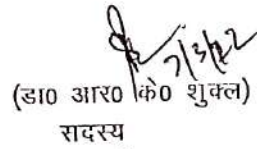 7/3/22
(डा0 आर0 के0 शुक्ल)
सदस्य